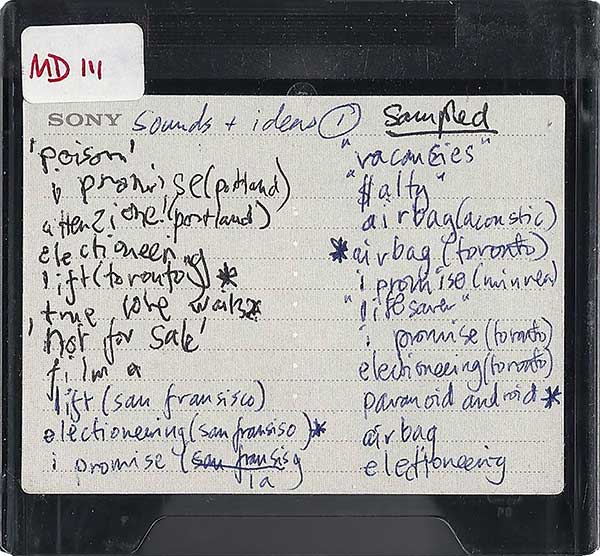 MD 111
SONY sounds + ideas ① Sampled
'poison'
i promise (portland)
attenzione! (portland)
electioneering
lift (toronto) *
true love waits*
'not for sale'
i'm a
lift (san fransisco)
electioneering (san fransiso) *
i promise (san fransis)
la
"vacancies"
"$alty"
airbag (acoustic)
*airbag (toronto)
i promise (minnea)
"lifesaver"
i promise (toronto)
electioneering (toronto)
paranoid android *
airbag
electioneering